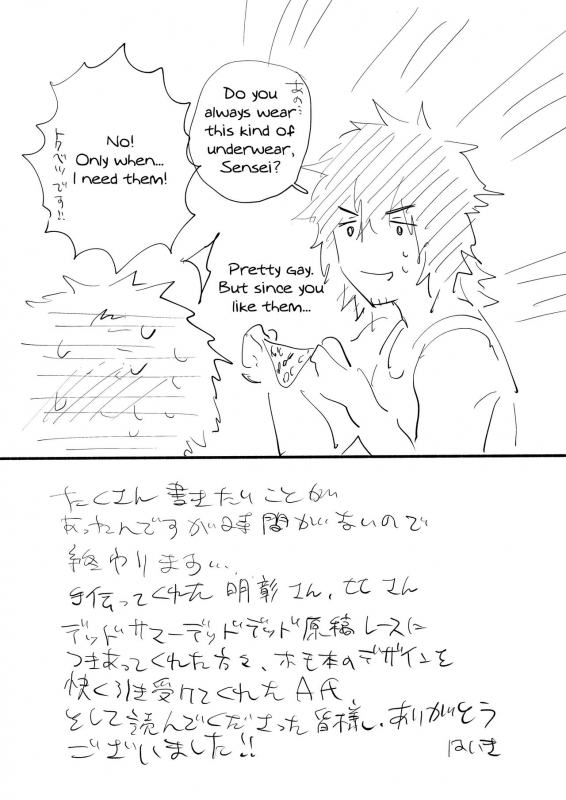 あの…
Do you
always wear
this kind of
underwear,
Sensei?
No!
Only when...
I need them!
トクベツです!!
Pretty gay.
But since you
like them...
たくさん書きたいことが
あったんですが時間がないので
終わります…
手伝ってくれた明彰さん、ヒヒさん
デッドサマーデッドデッド原稿レースに
つきあってくれた方々、ホモ本のデザインを
快く引き受けてくれたA氏
そして読んでくださった皆様、ありがとう
ございました!!
はいき